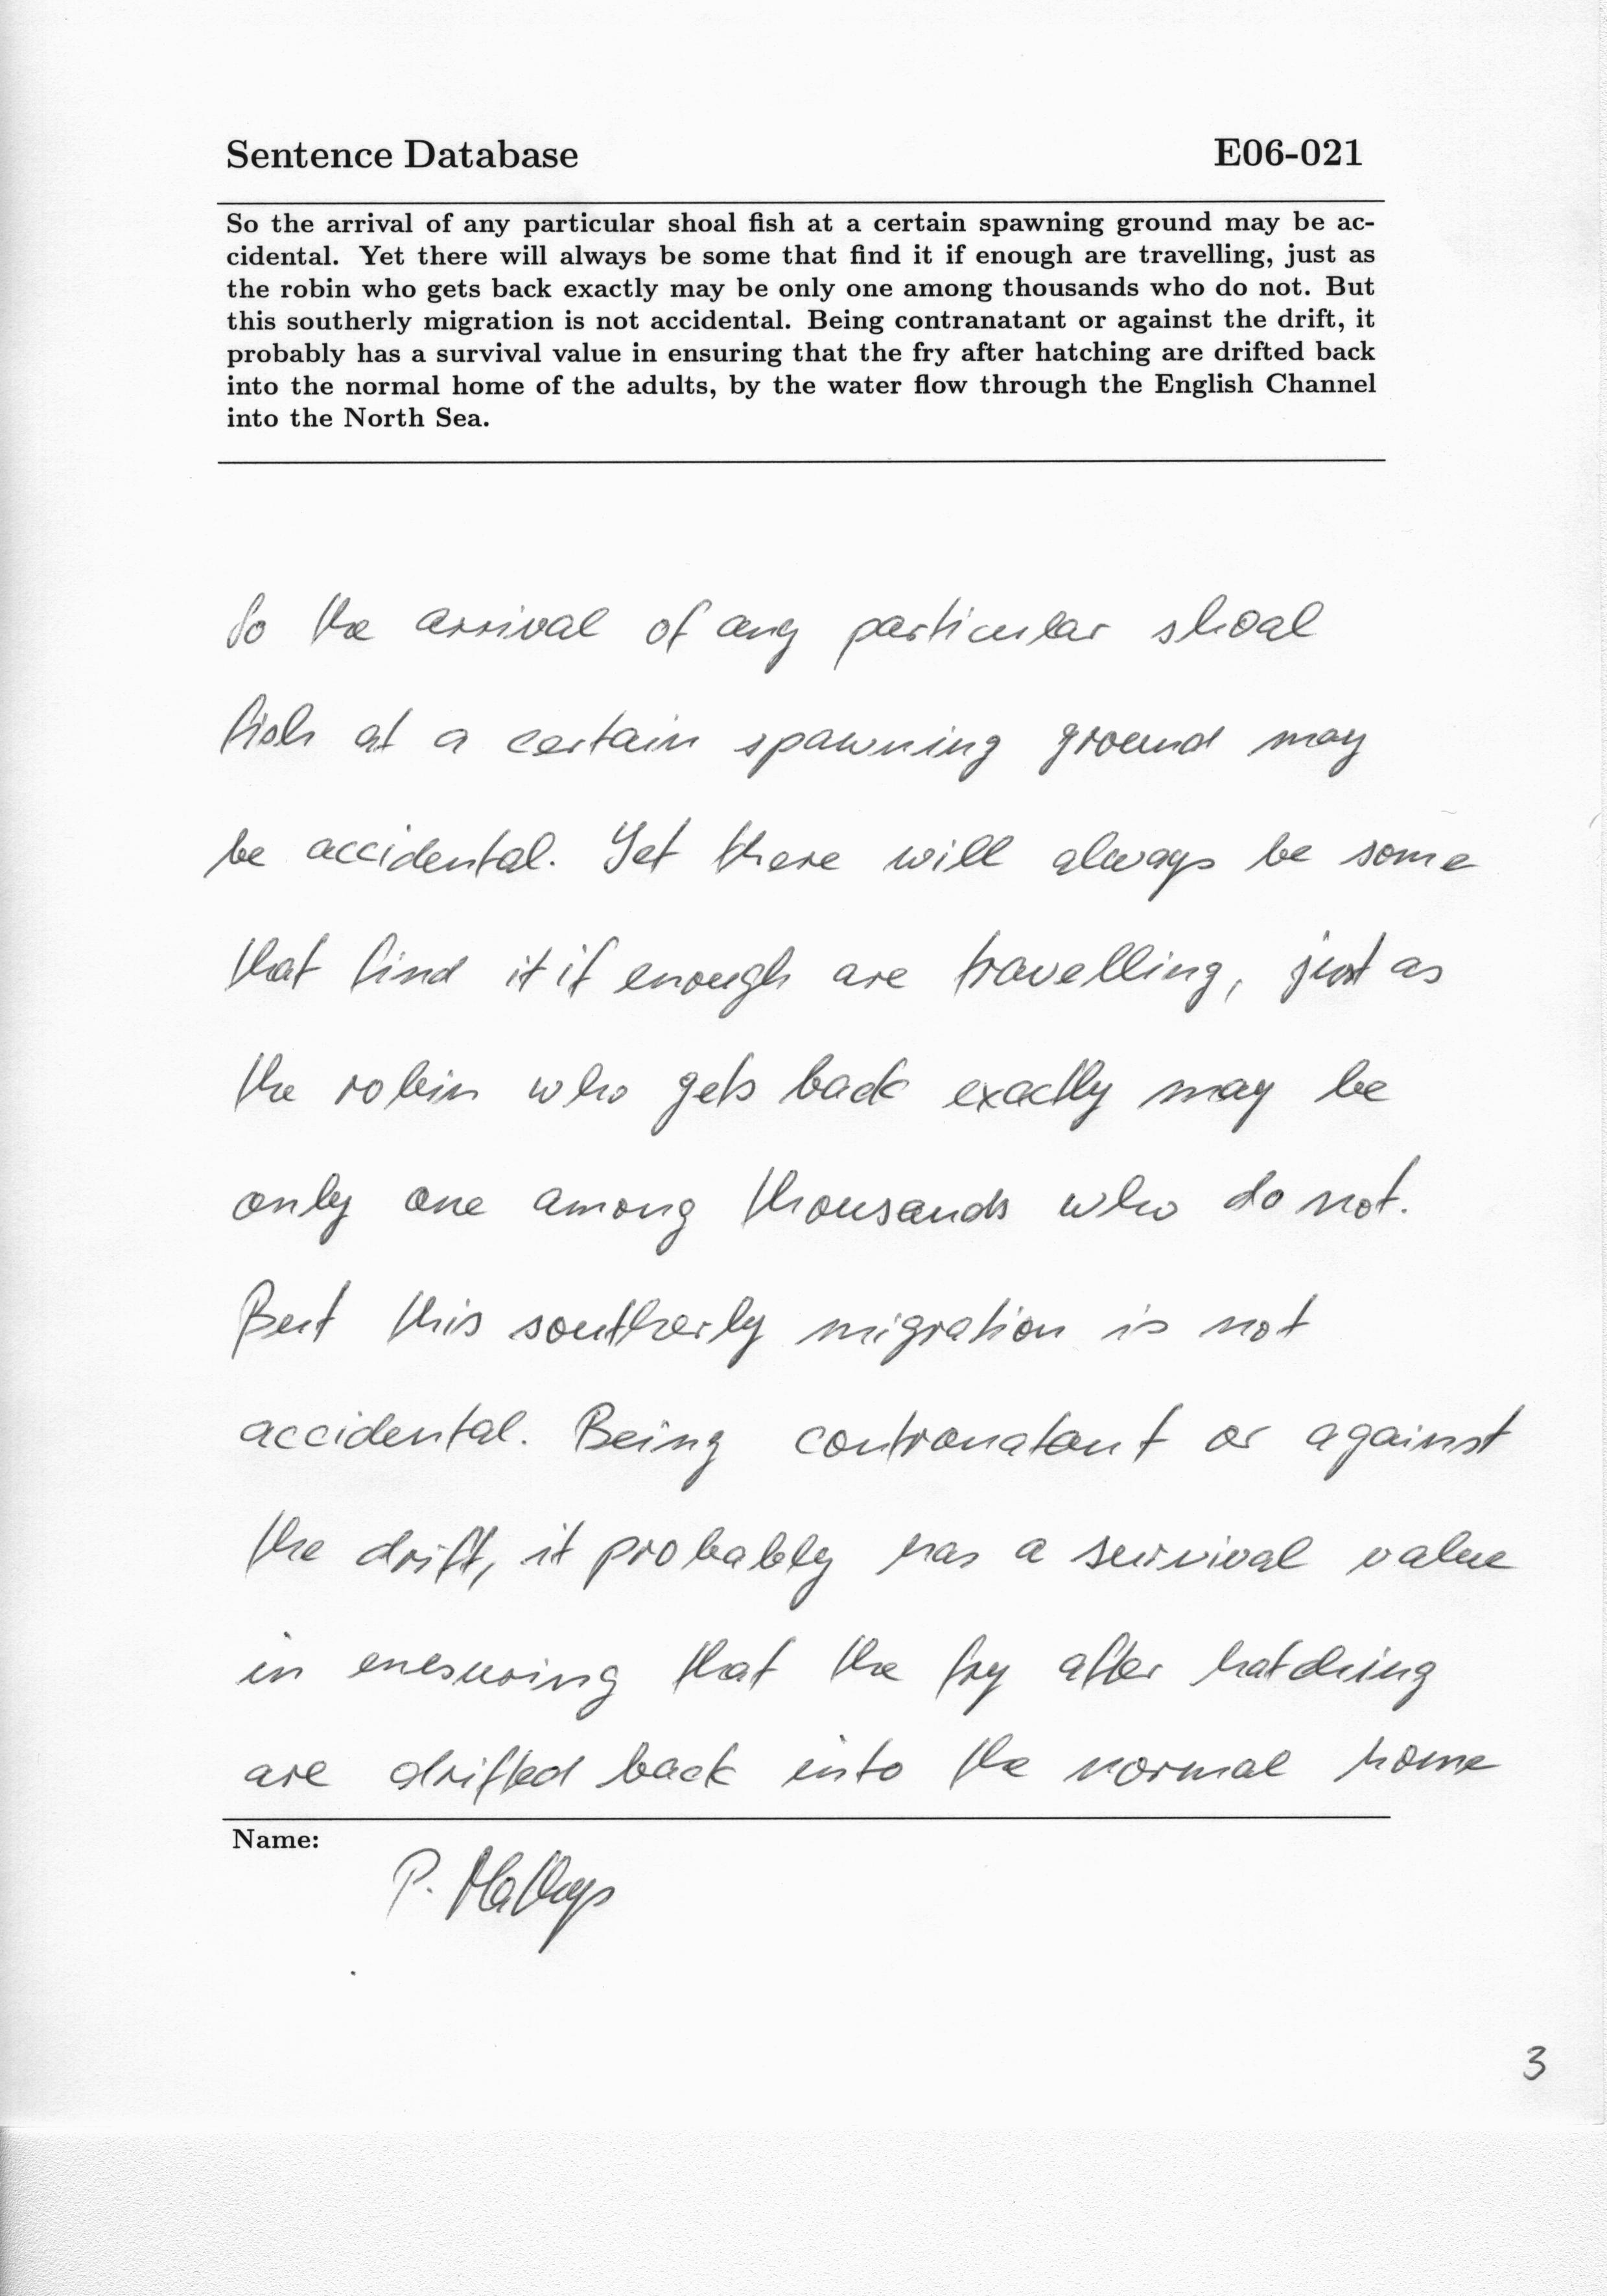 Sentence Database E06-021
So the arrival of any particular shoal fish at a certain spawning ground may be ac-
cidental. Yet there will always be some that find it if enough are travelling, just as
the robin who gets back exactly may be only one among thousands who do not. But
this southerly migration is not accidental. Being contranatant or against the drift, it
probably has a survival value in ensuring that the fry after hatching are drifted back
into the normal home of the adults, by the water flow through the English Channel
into the North Sea.
So the arrival of any particular shoal
fish at a certain spawning ground may
be accidental. Yet there will always be some
that find it if enough are travelling, just as
the robin who gets back exactly may be
only one among thousands who do not.
But this southerly migration is not
accidental. Being contranatant or against
the drift, it probably has a survival value
in enesuring that the fry after hatching
are drifted back into the normal home
Name:
P.
3